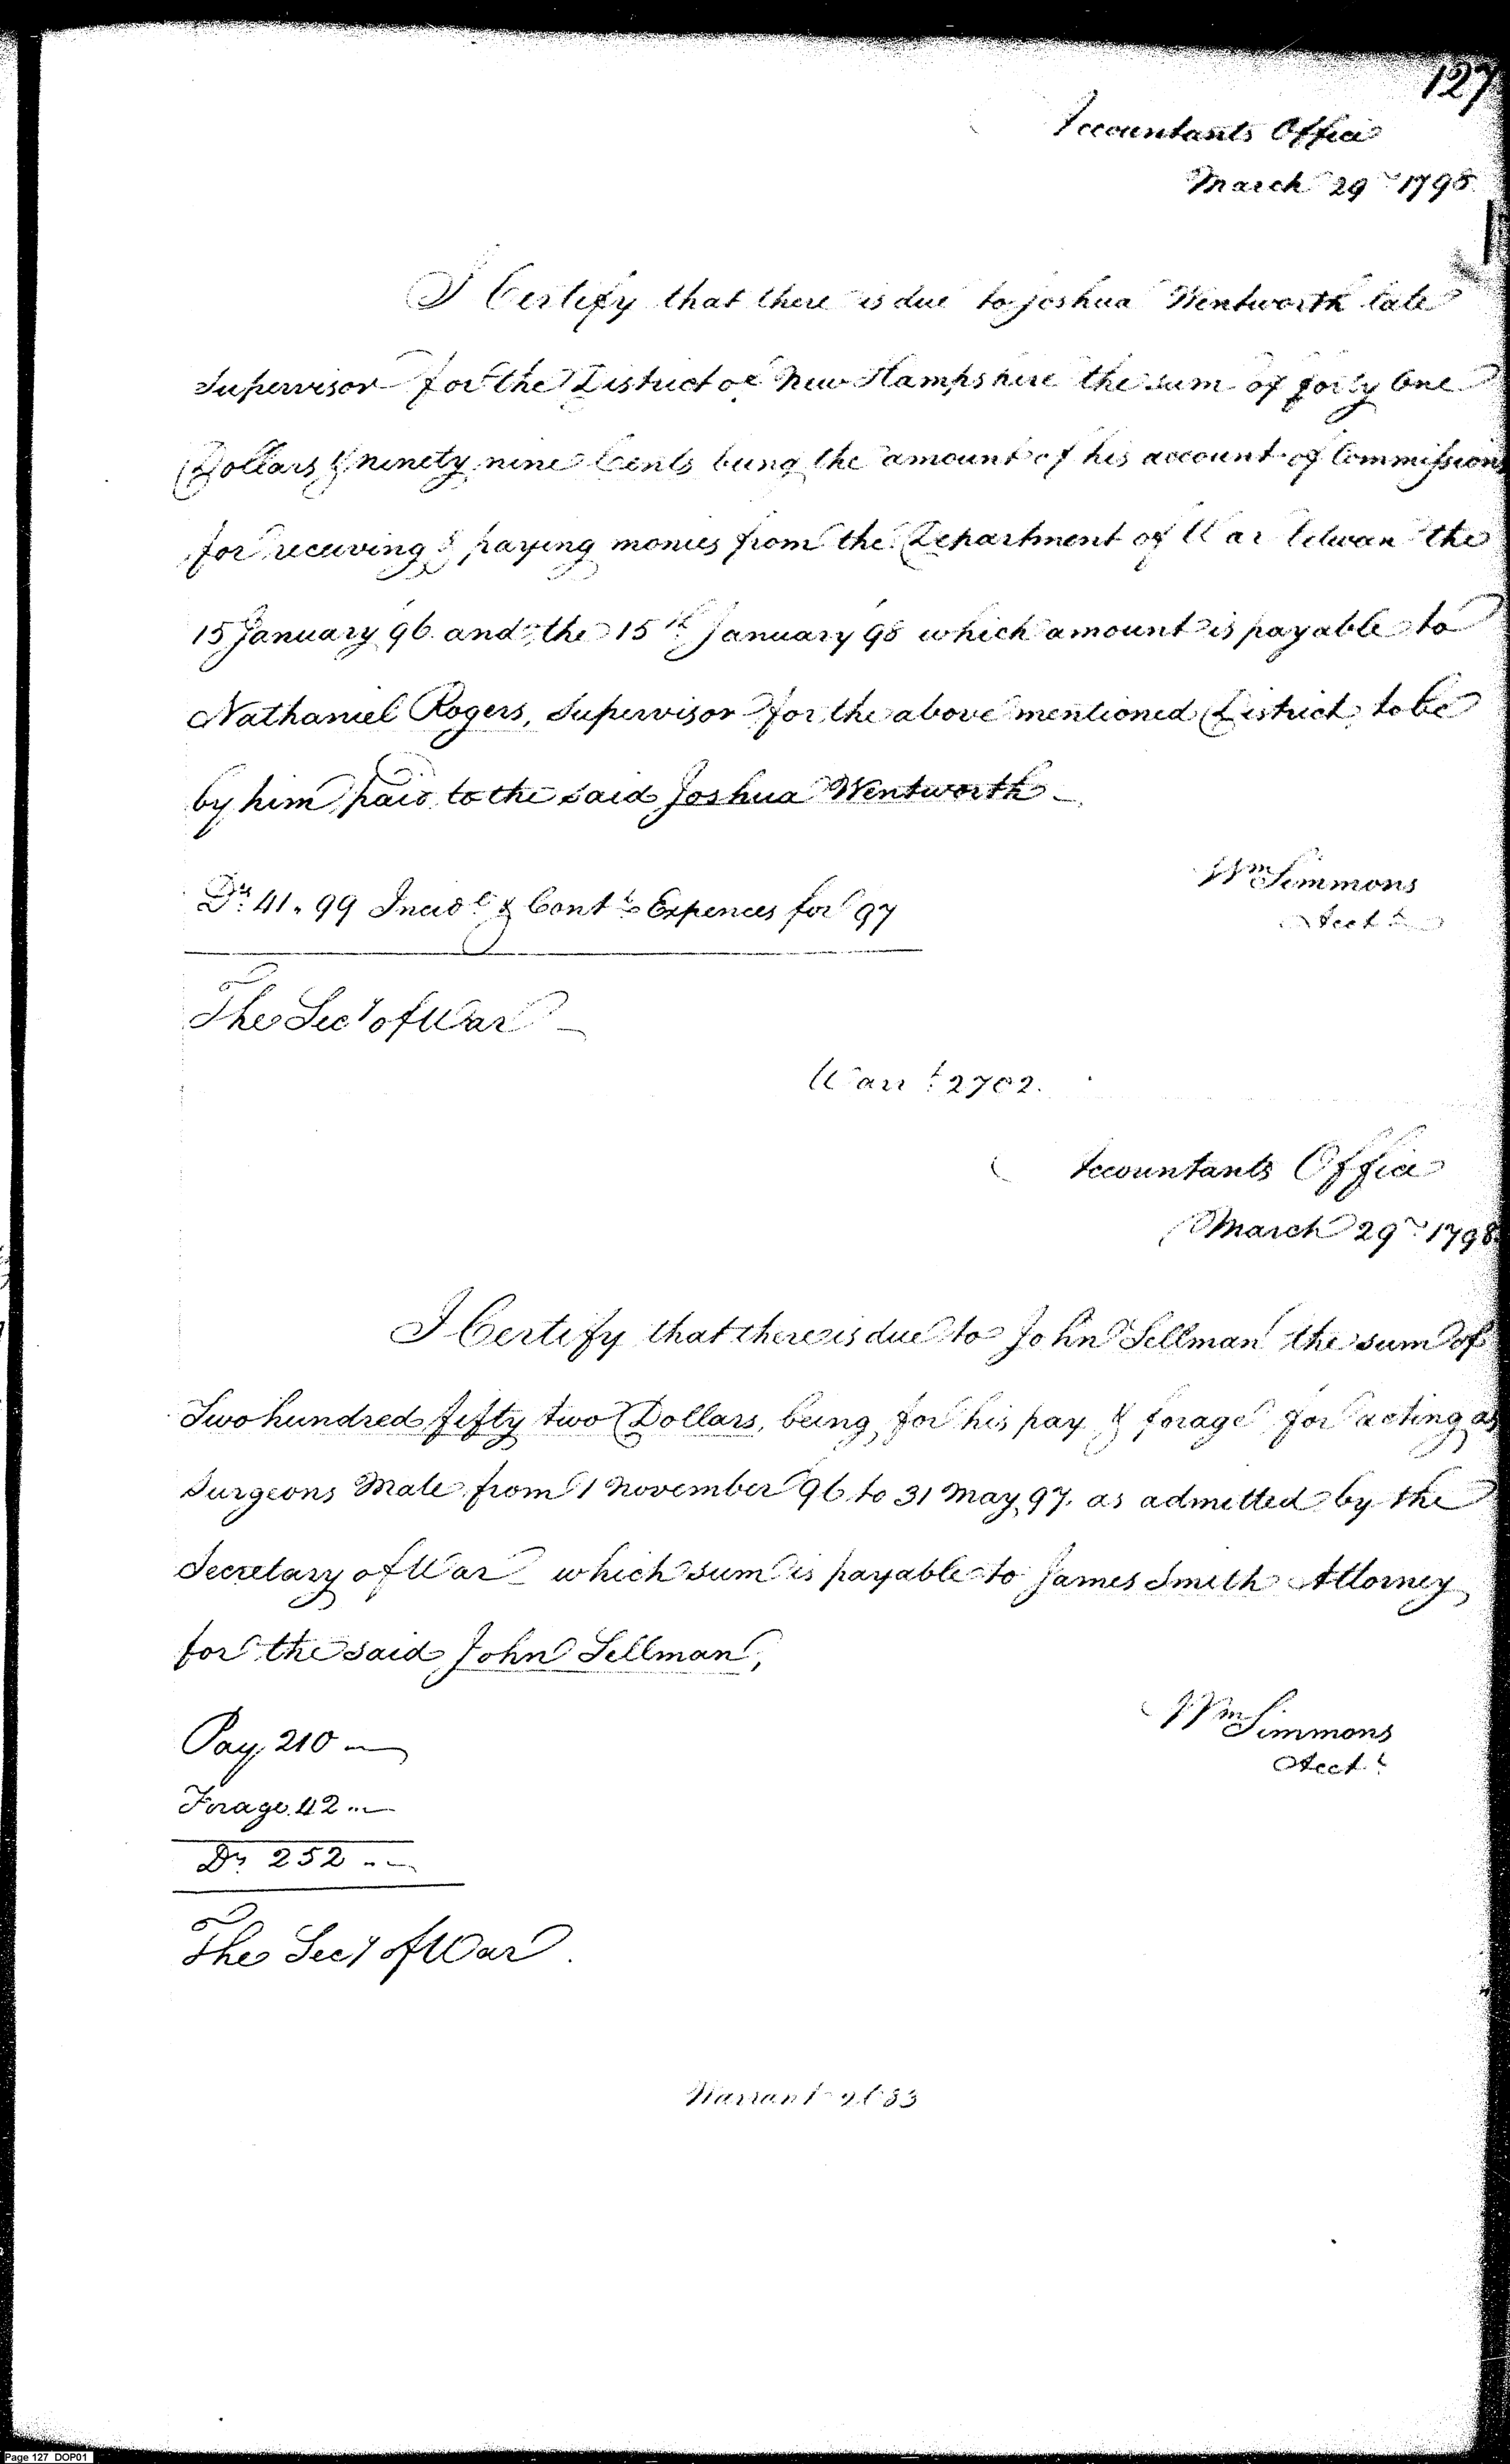 127
Accountants Office
March 29th 1798
I Certify that there is due to Joshua Wentworth late
Supervisor for the District of New Hampshire the sum of forty One
Dollars & ninety nine Cents being the amount of his account of Commissions
for receiving & paying monies from the Department of War between the
15 January 96 and the 15th January 98 which amount is payable to
Nathaniel Rogers, Supervisor for the above mentioned District, to be
by him paid to the said Joshua Wentworth
Drs 41.99 Incidl & Contt Expences for 97
Wm Simmons
Acctt
The Secy of War
Warrt 2702.
Accountants Office
March 29th 1798
I Certify that there is due to John Sellman the sum of
Two hundred fifty two Dollars, being for his pay & forage for acting as
Surgeons Mate from 1 November 96 to 31 May 97. as admitted by the
Secretary of War which sum is payable to James Smith Attorney
for the said John Sellman,
Pay 210
Wm Simmons
Acctt
Forage 42
Drs 252
The Secy of War.
Warrant
Page 127 DOP01